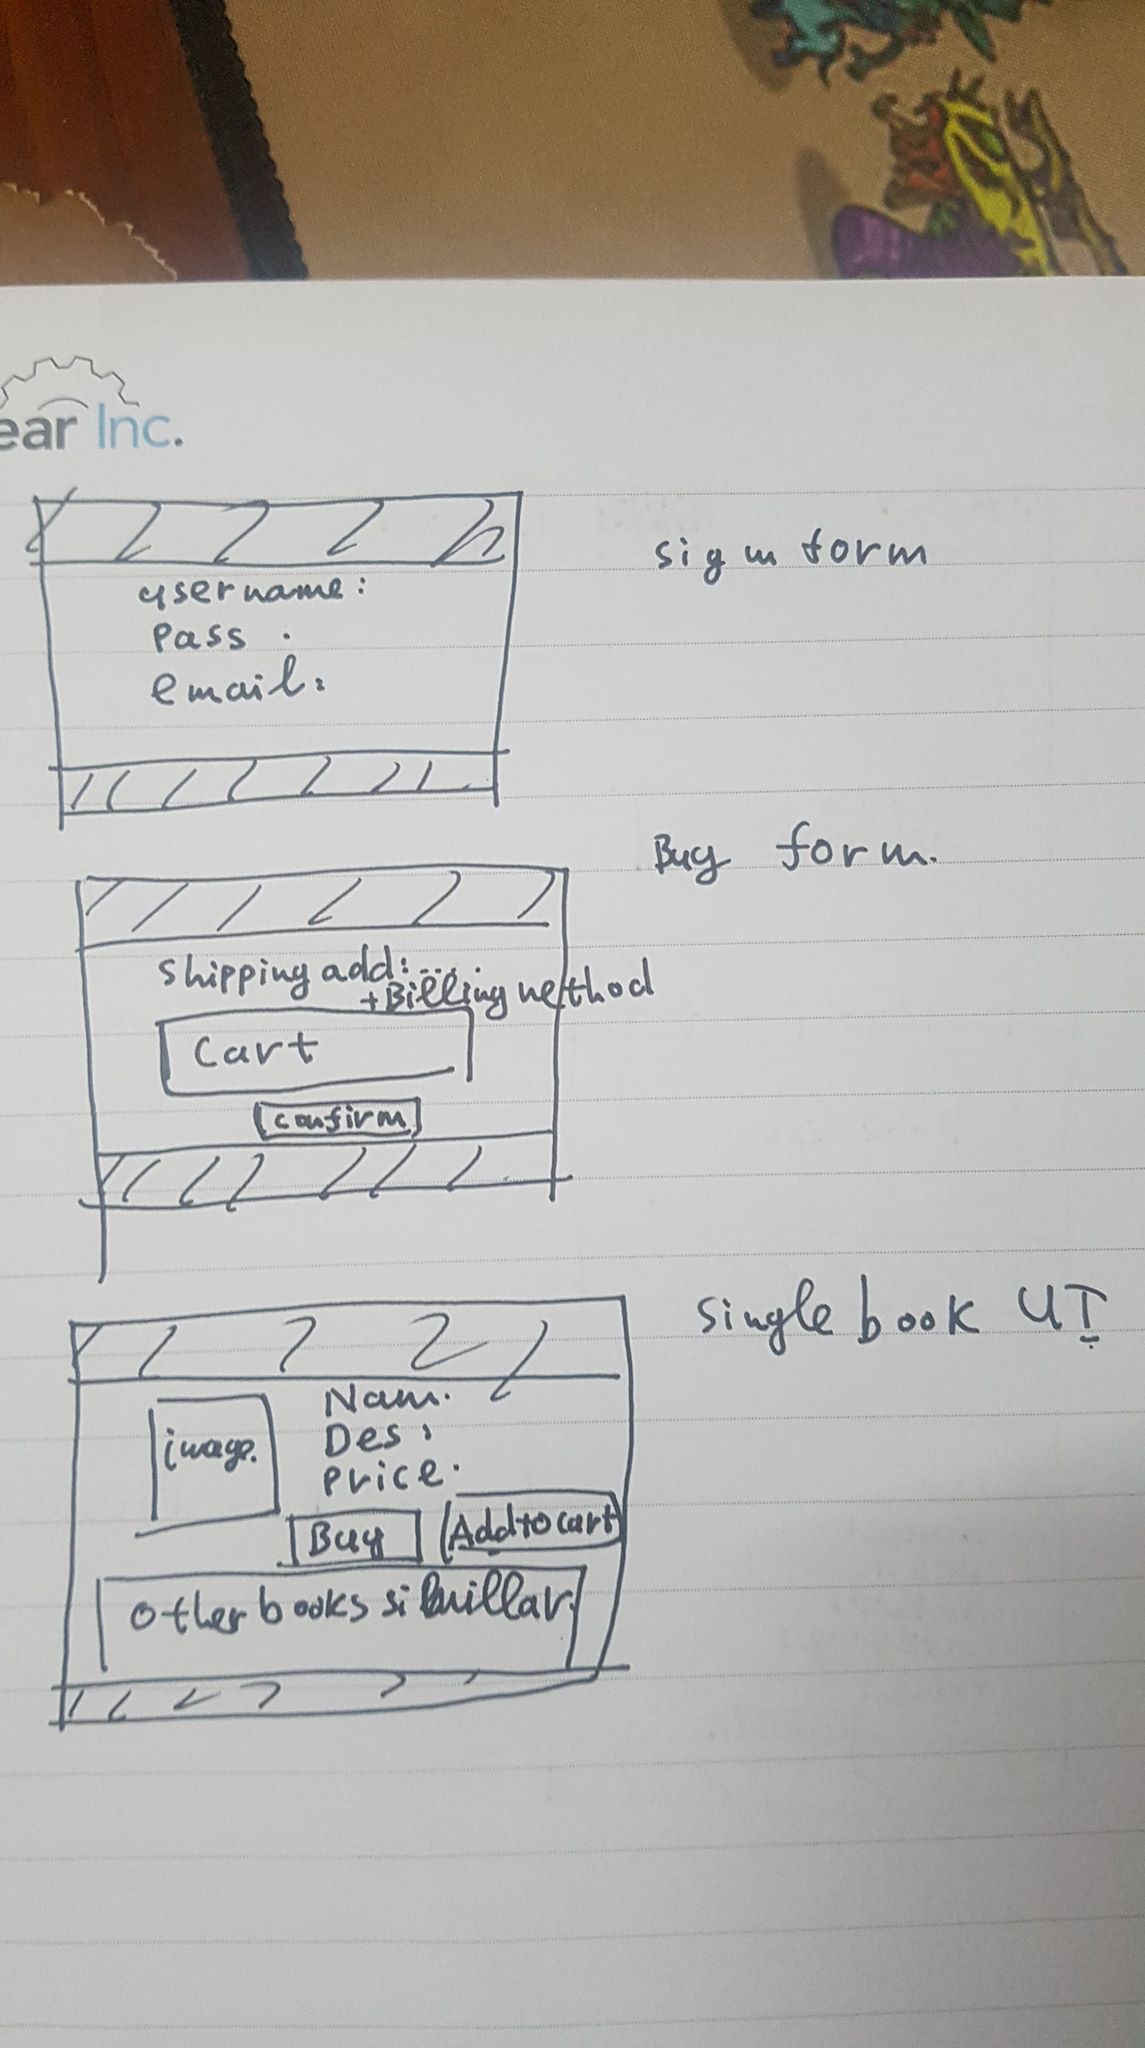 ear Inc.
sign form
username:
Pass :
email:
Buy form.
Shipping add:...
+Billing method
Cart
confirm
Single book UI
image.
Nam.
Des:
price.
Buy
Add to cart
other books si